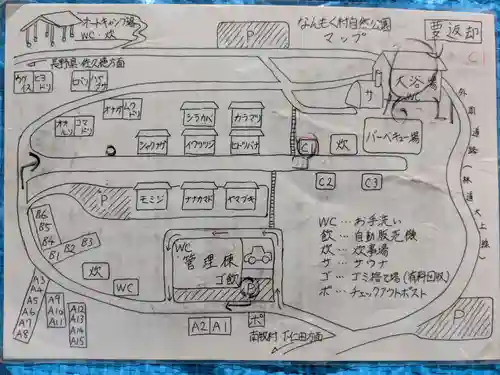 オートキャンプ場
WC・炊
なんもく村自然公園
マップ
要返却
P
長野県・佐久穂方面
大浴場
WC
サ
シラカバ
カラマツ
シャクナゲ
イワツツジ
ヒトリバナ
C1
炊
バーベキュー場
C2
C3
P
モミジ
ナナカマド
ヤマブキ
B6
B5
B4
B1
B2
B3
WC
管理棟
ゴ
飲
P
炊
WC
A3
A4
A5
A6
A7
A8
A9
A10
A11
A12
A13
A14
A15
A2
A1
ポ
南牧村 下仁田方面
外周道路(林道大上線)
P
WC…お手洗い
飲…自動販売機
炊…炊事場
サ…サウナ
ゴ…ゴミ捨て場(有料回収)
ポ…チェックアウトポスト